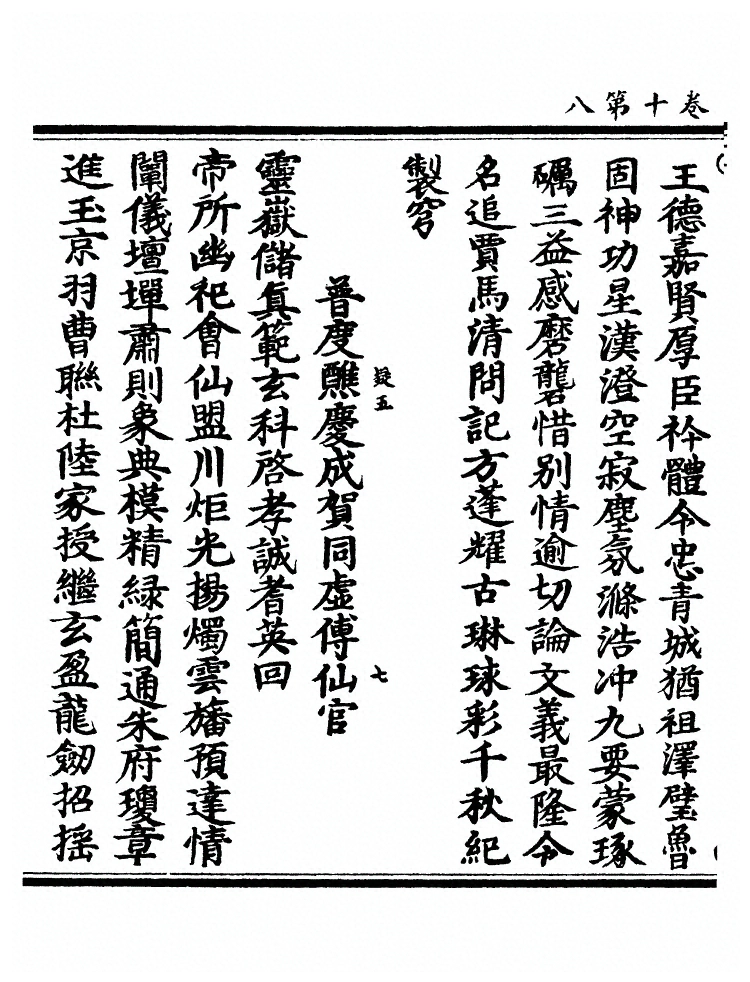 卷十第八
王德嘉賢厚臣衿體令忠青城猶祖澤璧魯
固神功星漢澄空寂塵氛滌浩冲九要蒙琢
礪三益感磨礲惜別情逾切論文義最隆令
名追賈馬清問記方蓬耀古琳球彩千秋紀
製穹
普度醮慶成賀同虛傅仙官
疑五
七
靈嶽儲真範玄科啓孝誠耆英回
帝所幽祀會仙盟川炬光揚燭雲旛預達情
闡儀壇墠肅則象典模精緑簡通朱府瓊章
進玉京羽曹聯杜陸家授繼玄盈龍劒招摇